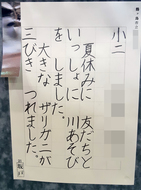 小二
夏休みに 友だちと
いっしょに 川あそび
を しました。
大きな ザリガニが
三びき つれました。